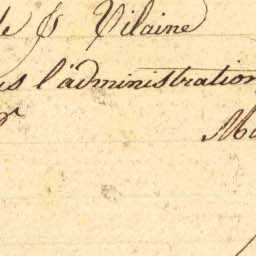 de & Vilaine
us l'administration
r Mo